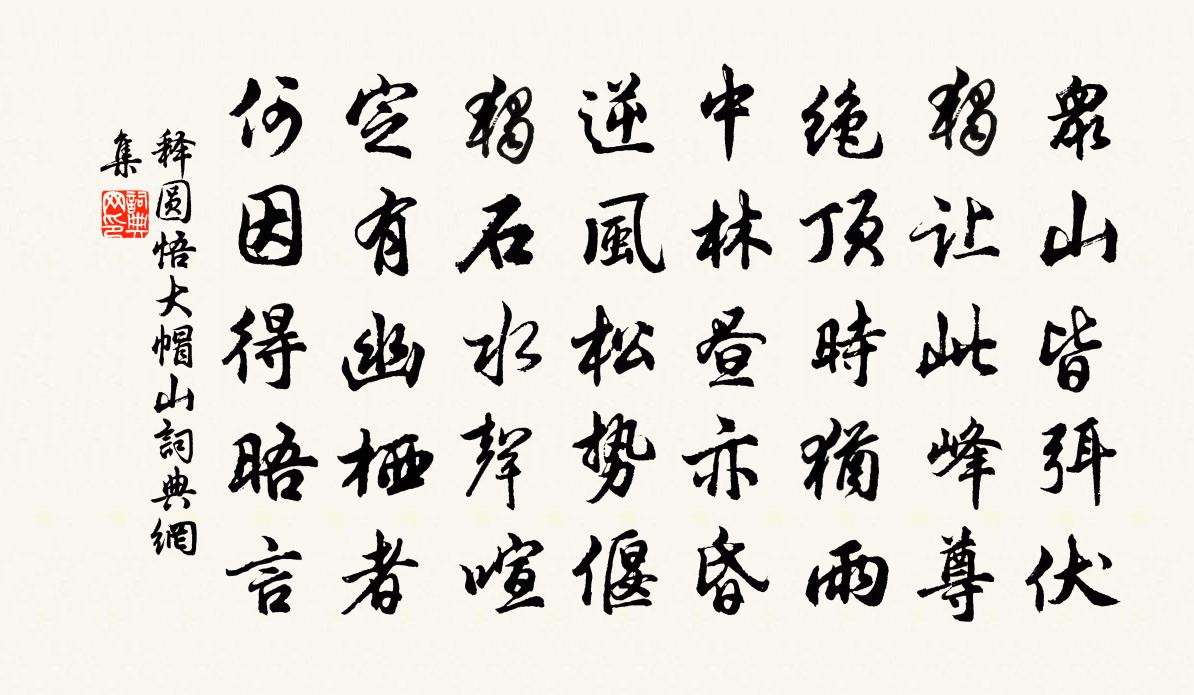 眾山皆弭伏
獨让此峰尊
绝頂時猶雨
中林昼亦昏
逆風松势偃
獨石水聲喧
定有幽栖者
何因得晤言
释圆悟大帽山詞典網
集
詞典网印